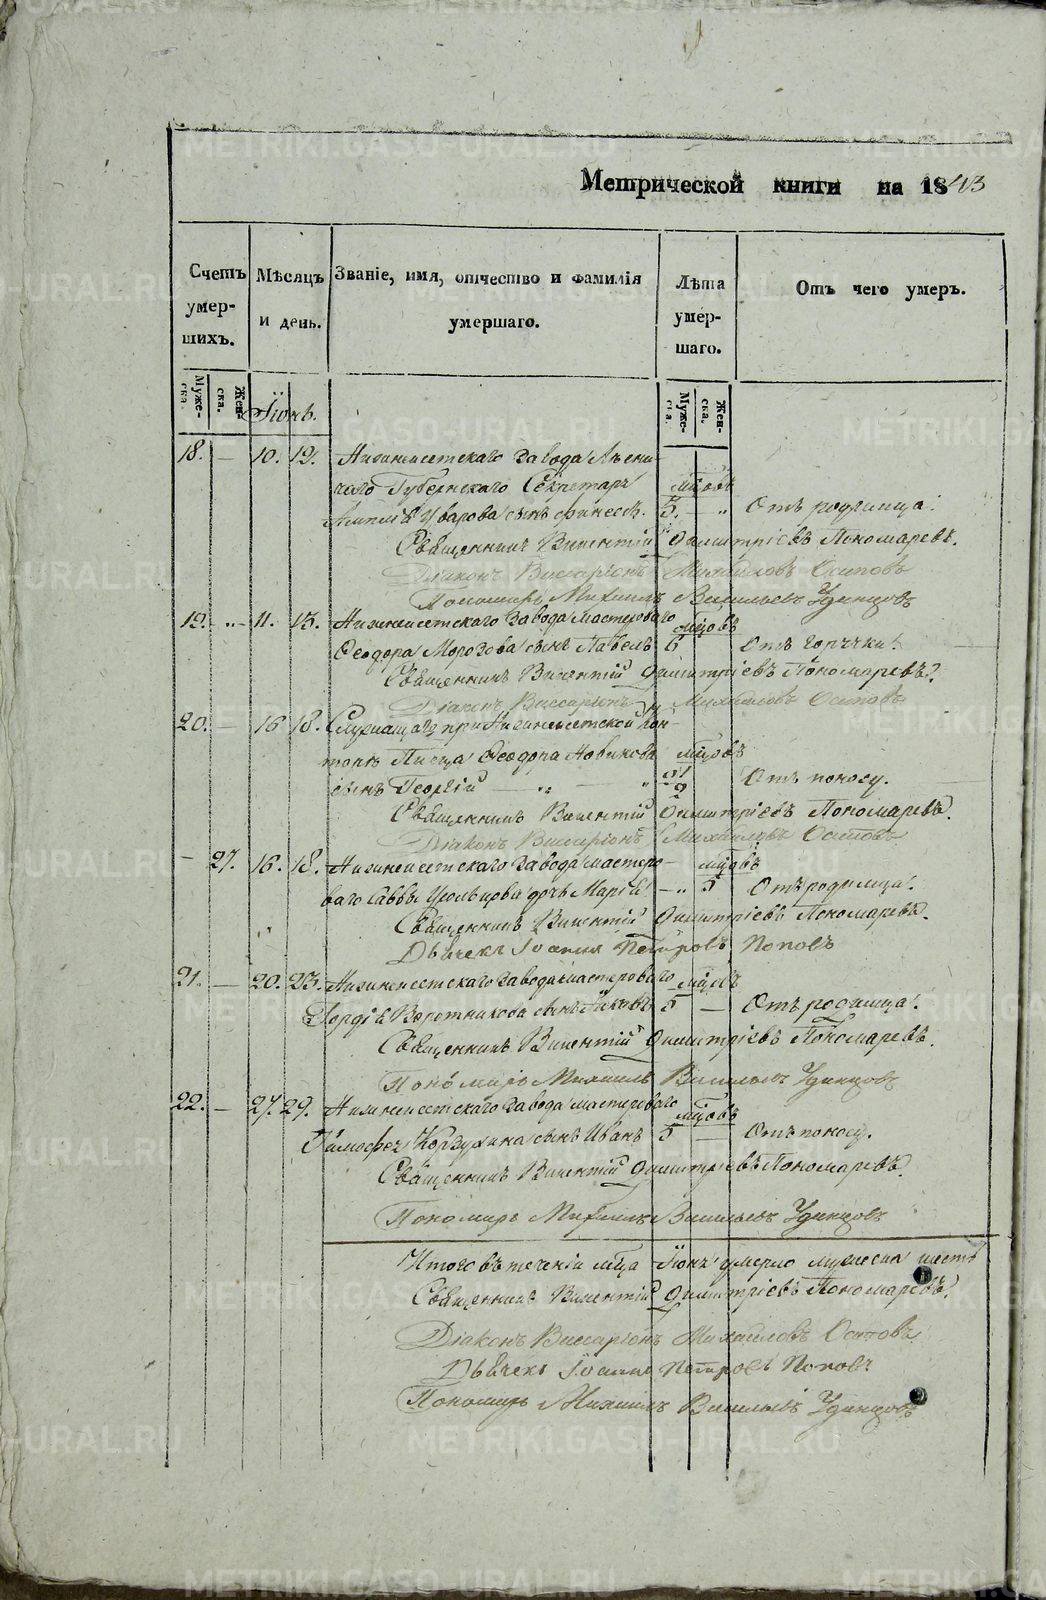 Метрической книги на 1843
Счетъ умер- шихъ.
Мѣсяцъ и день.
Званіе, имя, отчество и фамилія умершаго.
Лѣта умер- шаго.
Отъ чего умеръ.
Муже- ска. Жен- ска.
Муже- ска. Жен- ска.
Іюнь.
18. — 10. 12. Нижнеисетскаго Завода
Губернскаго Секретаря мцовъ
Уварова сынъ 5. — „ Отъ родимца.
Священникъ Викентій Димитріевъ Пономаревъ.
Діаконъ Виссаріонъ Михайловъ Осиповъ
Пономарь Михаилъ Васильевъ Удинцовъ
19. „ 11. 13. Нижнеисетскаго Завода мастероваго мцовъ
Ѳеодора Морозова сынъ Павелъ 6 Отъ горячки.
Священникъ Викентій Димитріевъ Пономаревъ.
Діаконъ Виссаріонъ Михайловъ Осиповъ
20. — 16 18. Служащаго при Нижнеисетской Кон-
торѣ Писца Ѳеодора Новикова мцовъ
сынъ Георгій — „ — „ Отъ поносу.
Священникъ Викентій Димитріевъ Пономаревъ.
Діаконъ Виссаріонъ Михайловъ Осиповъ
— 27. 16. 18. Нижнеисетскаго Завода мастеро- мцовъ
ваго Саввы дочь Марія — „ 5 Отъ родимца.
Священникъ Викентій Димитріевъ Пономаревъ.
Дьячекъ Іоаннъ Петровъ Поповъ
21. — 20. 23. Нижнеисетскаго Завода мастероваго мцовъ
Гордія Воротникова сынъ 5 — Отъ родимца.
Священникъ Викентій Димитріевъ Пономаревъ.
Пономарь Михаилъ Васильевъ Удинцовъ
22. — 27. 29. Нижнеисетскаго Завода мастероваго мцовъ
Тимофея Корзухина сынъ Иванъ 5 — Отъ поносу.
Священникъ Викентій Димитріевъ Пономаревъ
Пономарь Михаилъ Васильевъ Удинцовъ
Итого въ теченіи мца Іюня умерло мужеска шесть
Священникъ Викентій Димитріевъ Пономаревъ.
Діаконъ Виссаріонъ Михайловъ Осиповъ
Дьячекъ Іоаннъ Петровъ Поповъ
Пономарь Михаилъ Васильевъ Удинцовъ
METRIKI.GASO-URAL.RU